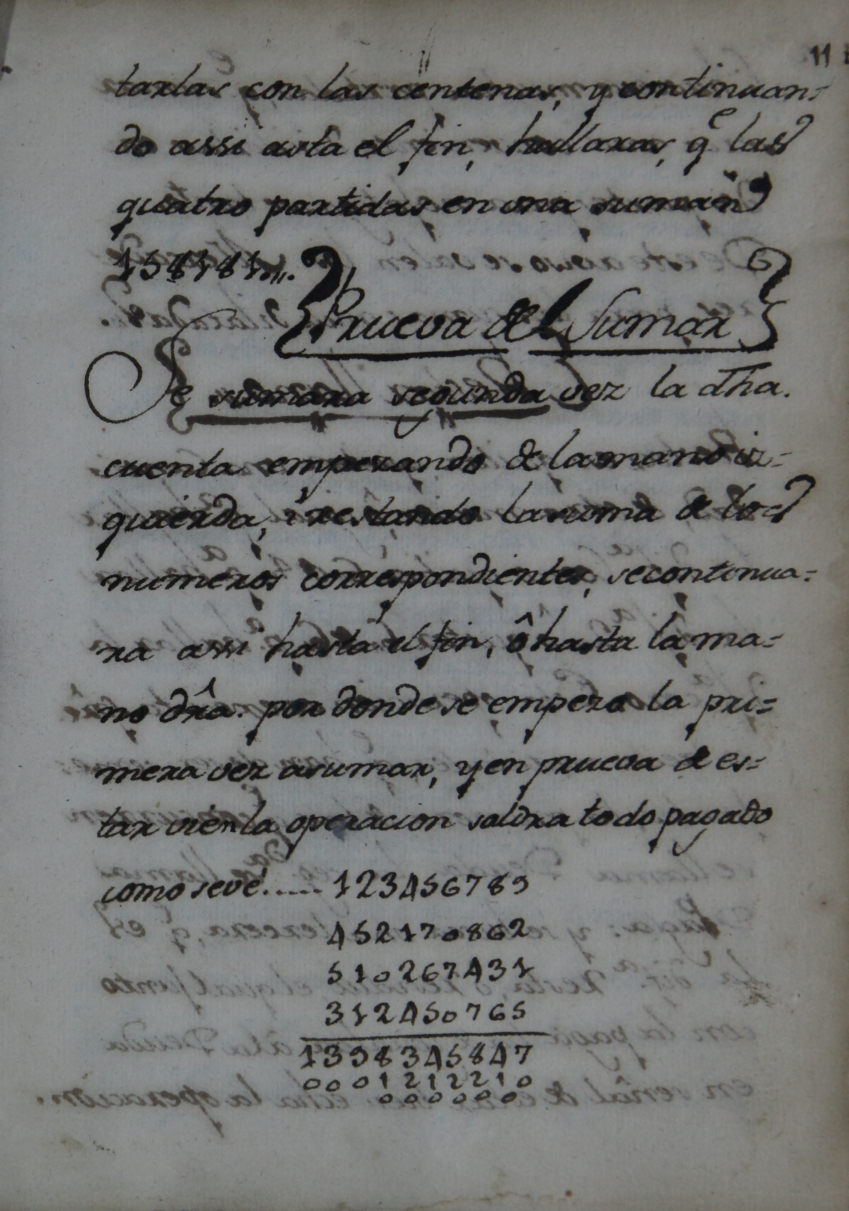 11
tarlas con las centenas, y continuan-
do assi asta el fin, hallaras, q.e las
quatro partidas en una suman
158181....
Prueva del Sumar
Se sumara segunda vez la dha.
cuenta empezando de la mano iz-
quierda, i restando la suma de los
numeros correspondientes, se continua-
ra assi hasta el fin, ô hasta la ma-
no dra. por donde se empezo la pri-
mera vez a sumar, y en prueva de es-
tar vien la operacion saldra todo pagado
como se ve...... 123456789
452170862
510267431
312450765
1398345847
0001212210
000000